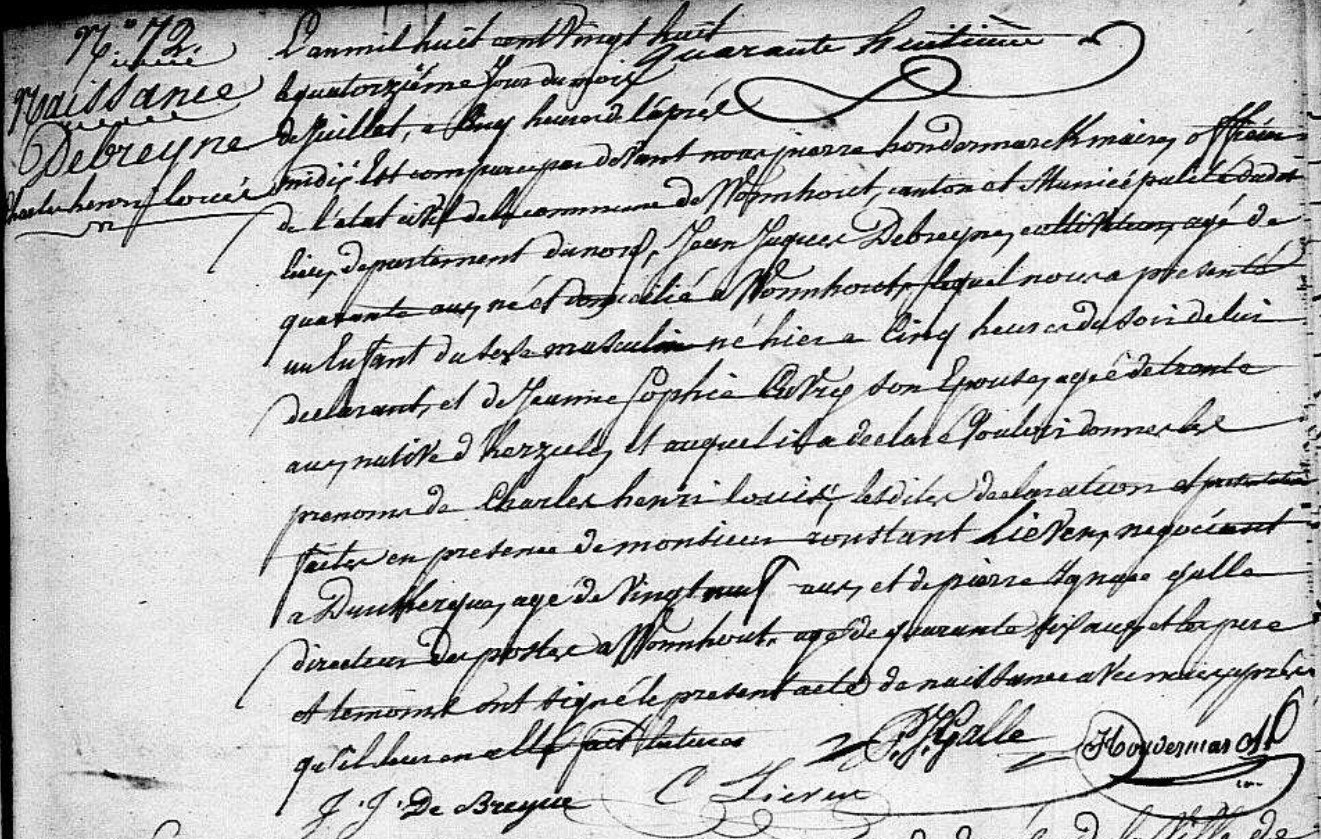 N.° 72.
Naissance
Debreyne
Charles henri louis
L'an mil huit cent vingt huit
quarante huitième
le quatorzième Jour du mois
de Juillet, a cinq heures de l'après
midi; Est comparu par devant nous pierre hondermarck maire, officier
de l'état civil de la commune de Wormhout, canton et Municipalité dudit
lieu, departement du nord, Jean Jaques Debreyne, cultivateur, agé de
quarante ans, né et domicilié a Wormhout, lequel nous a presenté
un Enfant du sexe masculin né hier a cinq heures du soir de lui
declarant, et de Jeanne Sophie son Epouse, agée de trente
ans, native d'herzeele, et auquel il a declaré vouloir donner les
prenoms de Charles henri louis, lesdites declaration et presentation
faites en presence de monsieur constant Lieven, negociant
a Dunkerque, agé de vingt neuf ans, et de pierre Ignace galle
directeur des postes a Wormhout, agé de quarante six ans, et les pere
et temoins ont signé le present acte de naissance avec nous, après
qu'il leur en a été fait lecture
P. J. Galle
J. J. De Breyne C Lieven